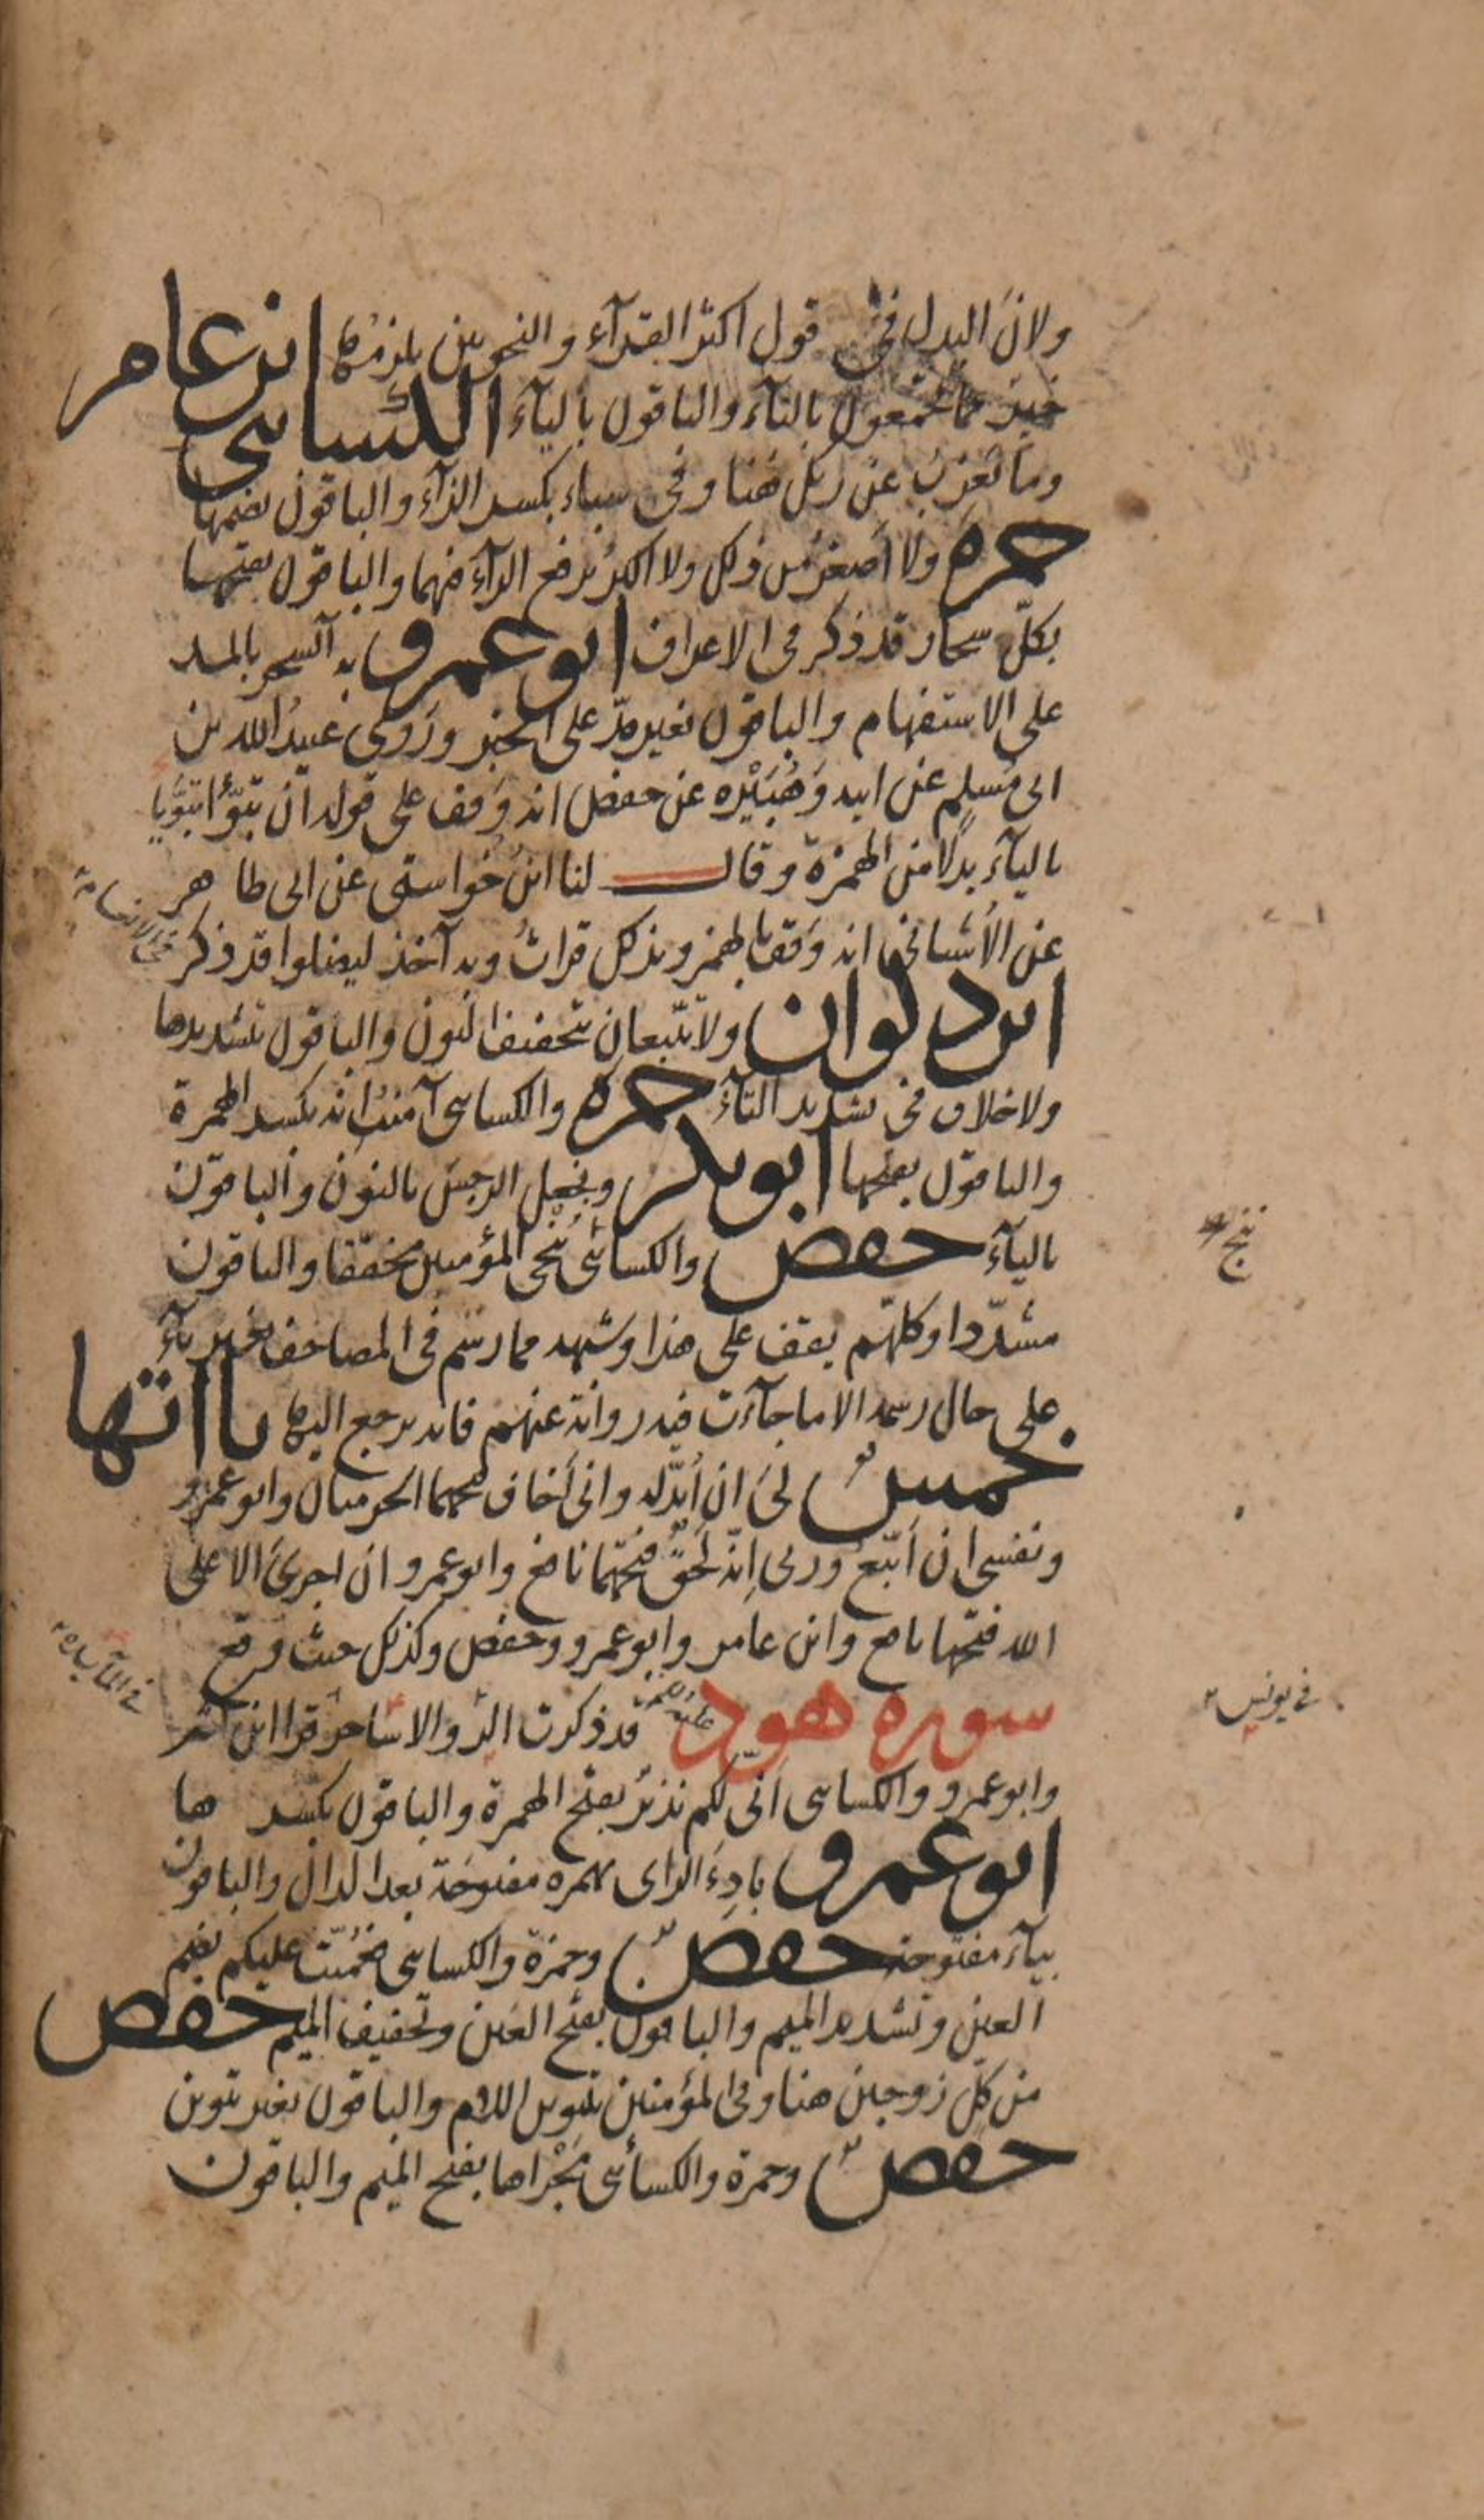 ولانّ البدل في قول اكثر القرآء والنحويين يلزمها ابن عامر
خير مما تجمعون بالتآء والباقون باليآء الكسائي
وما يعزب عن ربك هنا وفي سباء بكسر الزآء والباقون بضمها
حمزة ولا اصغرُ من ذلك ولا اكبرُ برفع الرآء فيهما والباقون بفتحها
بكلّ سحار قد ذكر في الاعراف ابو عمرو به آلسحر بالمد
على الاستفهام والباقون بغير مدّ على الخبر وروى عبيد الله بن
ابي مسلم عن ابيه وهُبَيْرة عن حفص انه وقف على قوله ان تبوّأ تبوّيا
باليآء بدلا من الهمزة وقال لنا ابن خواستى عن ابى طاهر
عن الأشناني انه وقف بالهمز وبذلك قرأتُ وبه آخذ ليضلوا قد ذكر
في الانعام
ابن ذكوان ولا تتّبعان بتخفيف النون والباقون بتشديدها
ولا خلاف في تشديد التآء حمزة والكسائي آمنتُ انه بكسر الهمزة
والباقون بفتحها ابو بكر ونجعل الرجس بالنون والباقون
باليآء حفص والكسائي نُنْجِ المؤمنين مخففا والباقون
ننج
مشدّدا وكلّهم يقف على هذا وشبهه مما رسم في المصاحف بغير يآء
على حال رسمه الا ما جآءت فيه رواية عنهم فانه يرجع اليها يااتها
خمس لي ان أبدّله واني أخاف فتحهما الحرميان وابو عمرو
ونفسي ان أتّبع وربي إنّه لحقّ فتحهما نافع وابو عمرو ان اجري الا على
الله فتحها نافع وابن عامر وابو عمرو وحفص وكذلك حيث وقع
سورة هود قد ذكرت الر والا ساحر قرا ابن كثير
في يونس
في المآيدة
وابو عمرو والكسائي أنّي لكم نذير بفتح الهمزة والباقون بكسرها
ابو عمرو بادِءَ الراى بهمزة مفتوحة بعد الدال والباقون
بيآء مفتوحة حفص وحمزة والكسائي فعُمّيت عليكم بضم
العين وتشديد الميم والباقون بفتح العين وتخفيف الميم حفص
من كلٍّ زوجين هنا وفي المؤمنين بتنوين اللام والباقون بغير تنوين
حفص وحمزة والكسائي مَجْراها بفتح الميم والباقون